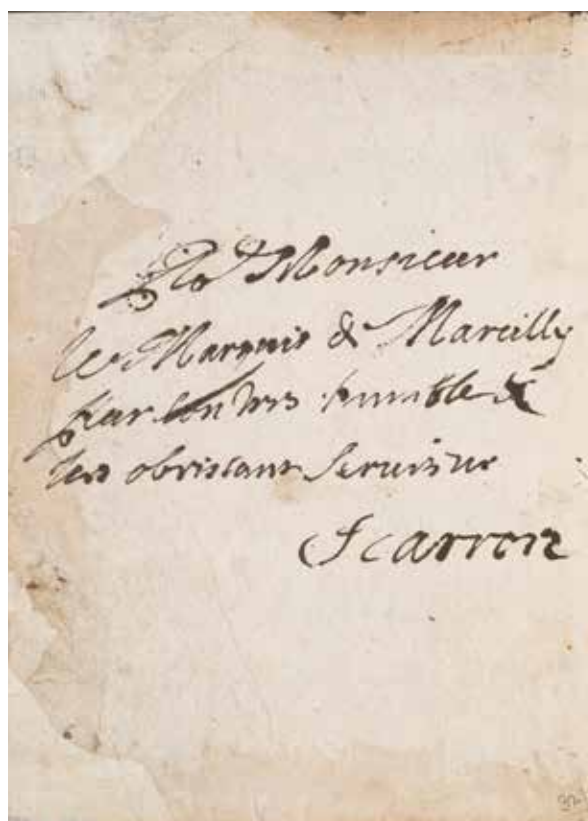 Pr Monsieur
le Marquis de Marcilly
par son tres humble &
tres obeissant serviteur
Scarron